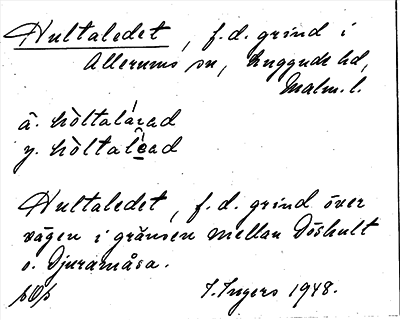 Hultaledet, f.d. grind i
Allerums sn, Luggude hd,
Malm. l.
ä. hòltalárad
y. hòltalêad
Hultaledet, f.d. grind över
vägen i gränsen mellan Döshult
o. Djuramåsa.
I. Ingers 1948.